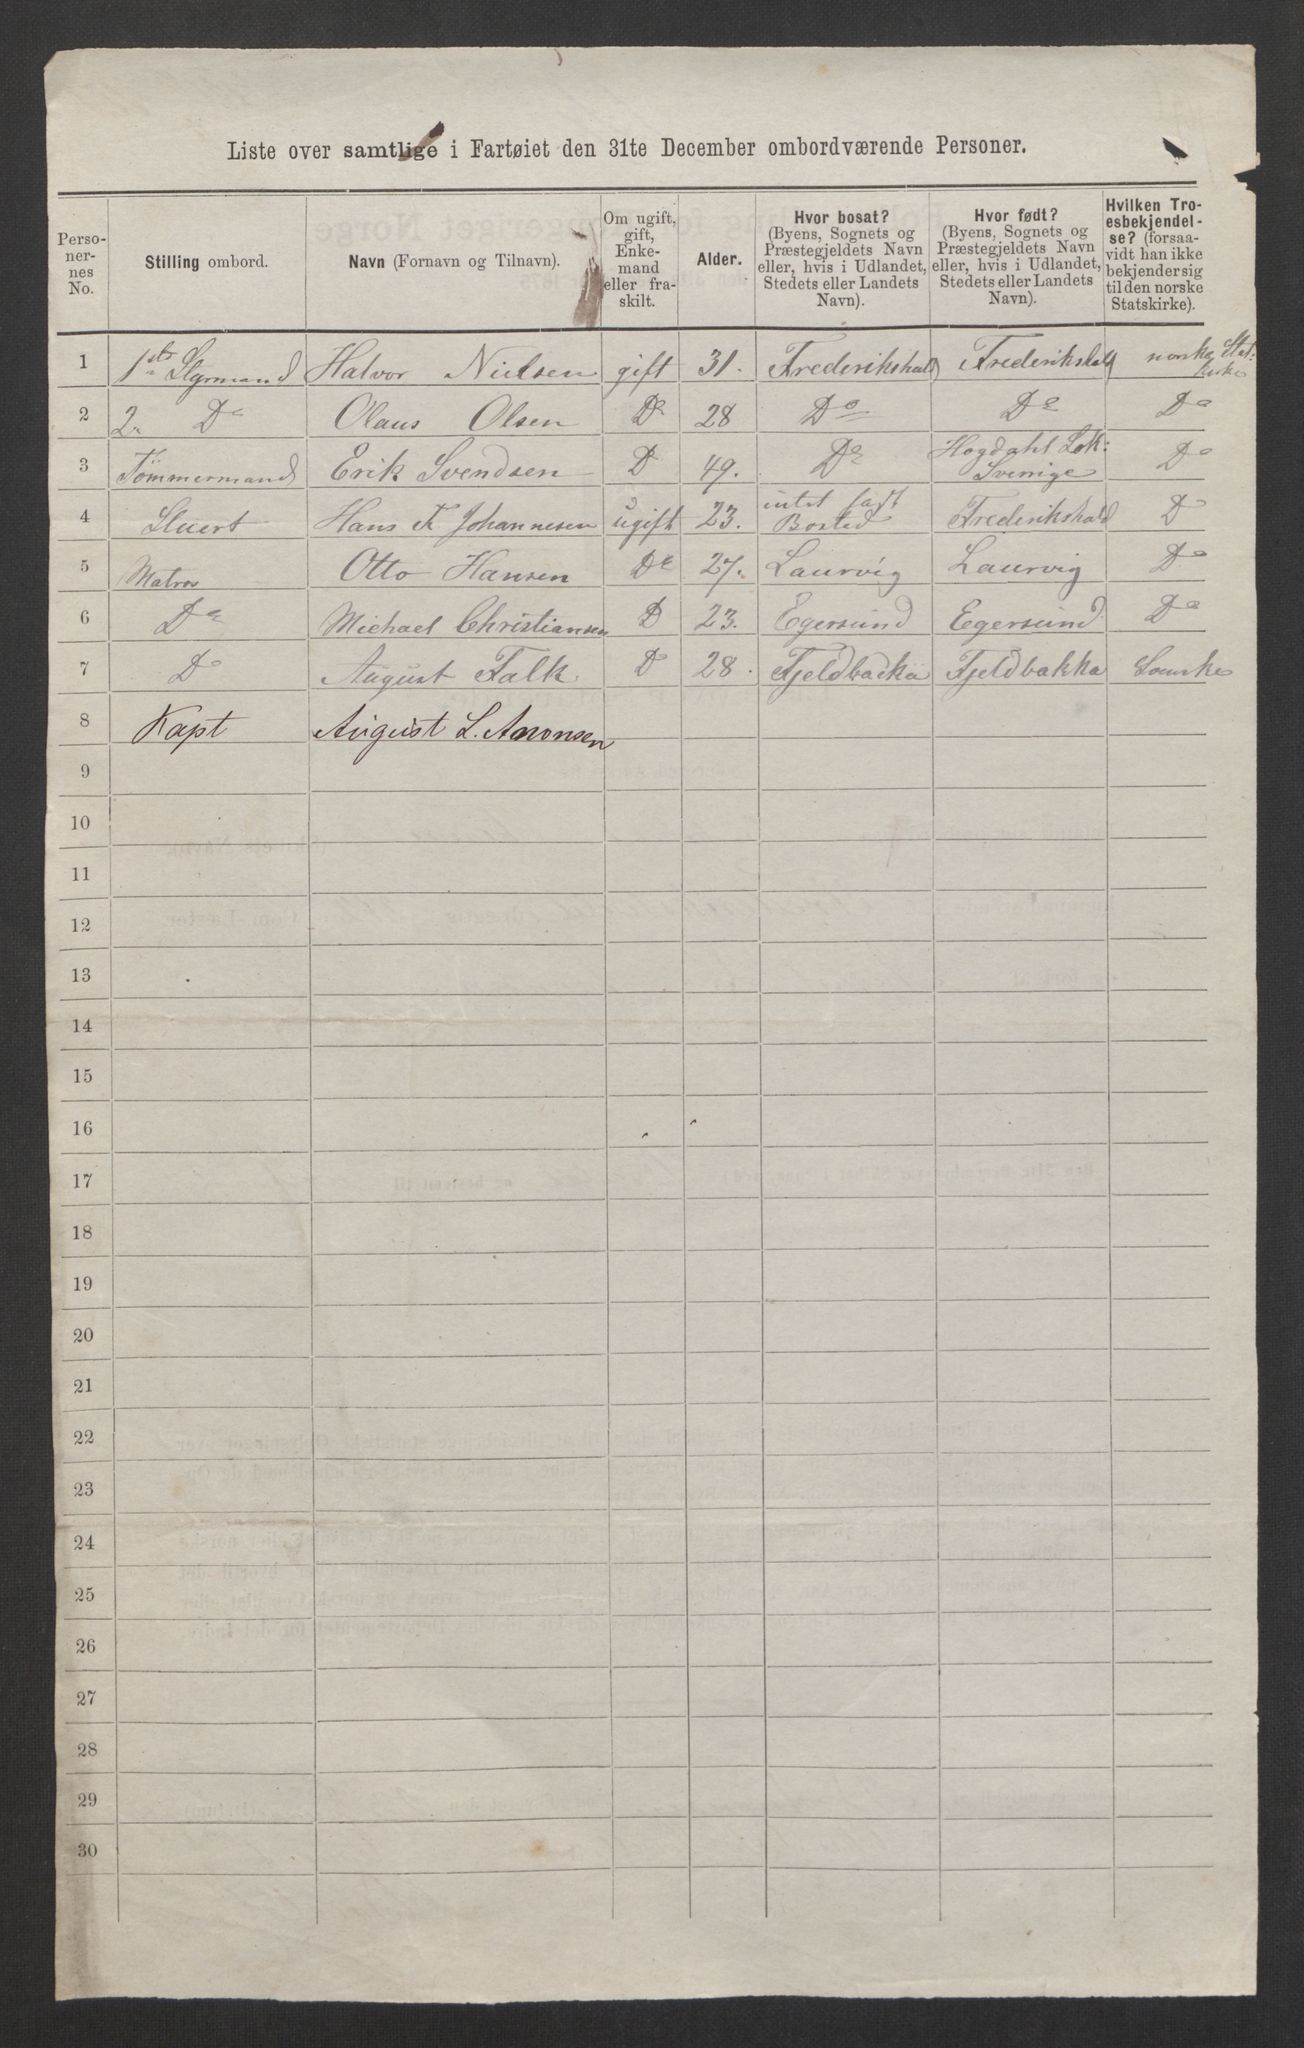 Liste over samtlige i Fartøiet den 31te December ombordværende Personer.
Perso-
ner-
nes
No.
Stilling ombord.
Navn (Fornavn og Tilnavn).
Om ugift,
gift,
Enke-
mand
eller fra-
skilt.
Alder.
Hvor bosat?
(Byens, Sognets og
Præstegjeldets Navn
eller, hvis i Udlandet,
Stedets eller Landets
Navn).
Hvor født?
(Byens, Sognets og
Præstegjeldets Navn
eller, hvis i Udlandet,
Stedets eller Landets
Navn).
Hvilken Tro-
esbekjendel-
se? (forsaa-
vidt han ikke
bekjender sig
til den norske
Statskirke).
1 1ste Styrmand Halvor Nielsen gift 31. Frederikshald Frederikshald norske Stats-
kirke
2 2. Do Olaus Olsen Do 28 Do Do Do
3 Tömmermand Erik Svendsen D 49. Do Hogdahl Sok:
Sverrige Do
4 Stuert Hans F. Johannesen ugift 23. intet fast
Bosted Frederikshald D
5 Matros Otto Hansen Do 27. Laurvig Laurvig Do
6 Do Michael Christiansen D 23. Egersund Egersund Do
7 Do August Falk. D 28. Fjeldbacka Fjeldbakka
8 Kapt August L. Aronsen
9
10
11
12
13
14
15
16
17
18
19
20
21
22
23
24
25
26
27
28
29
30